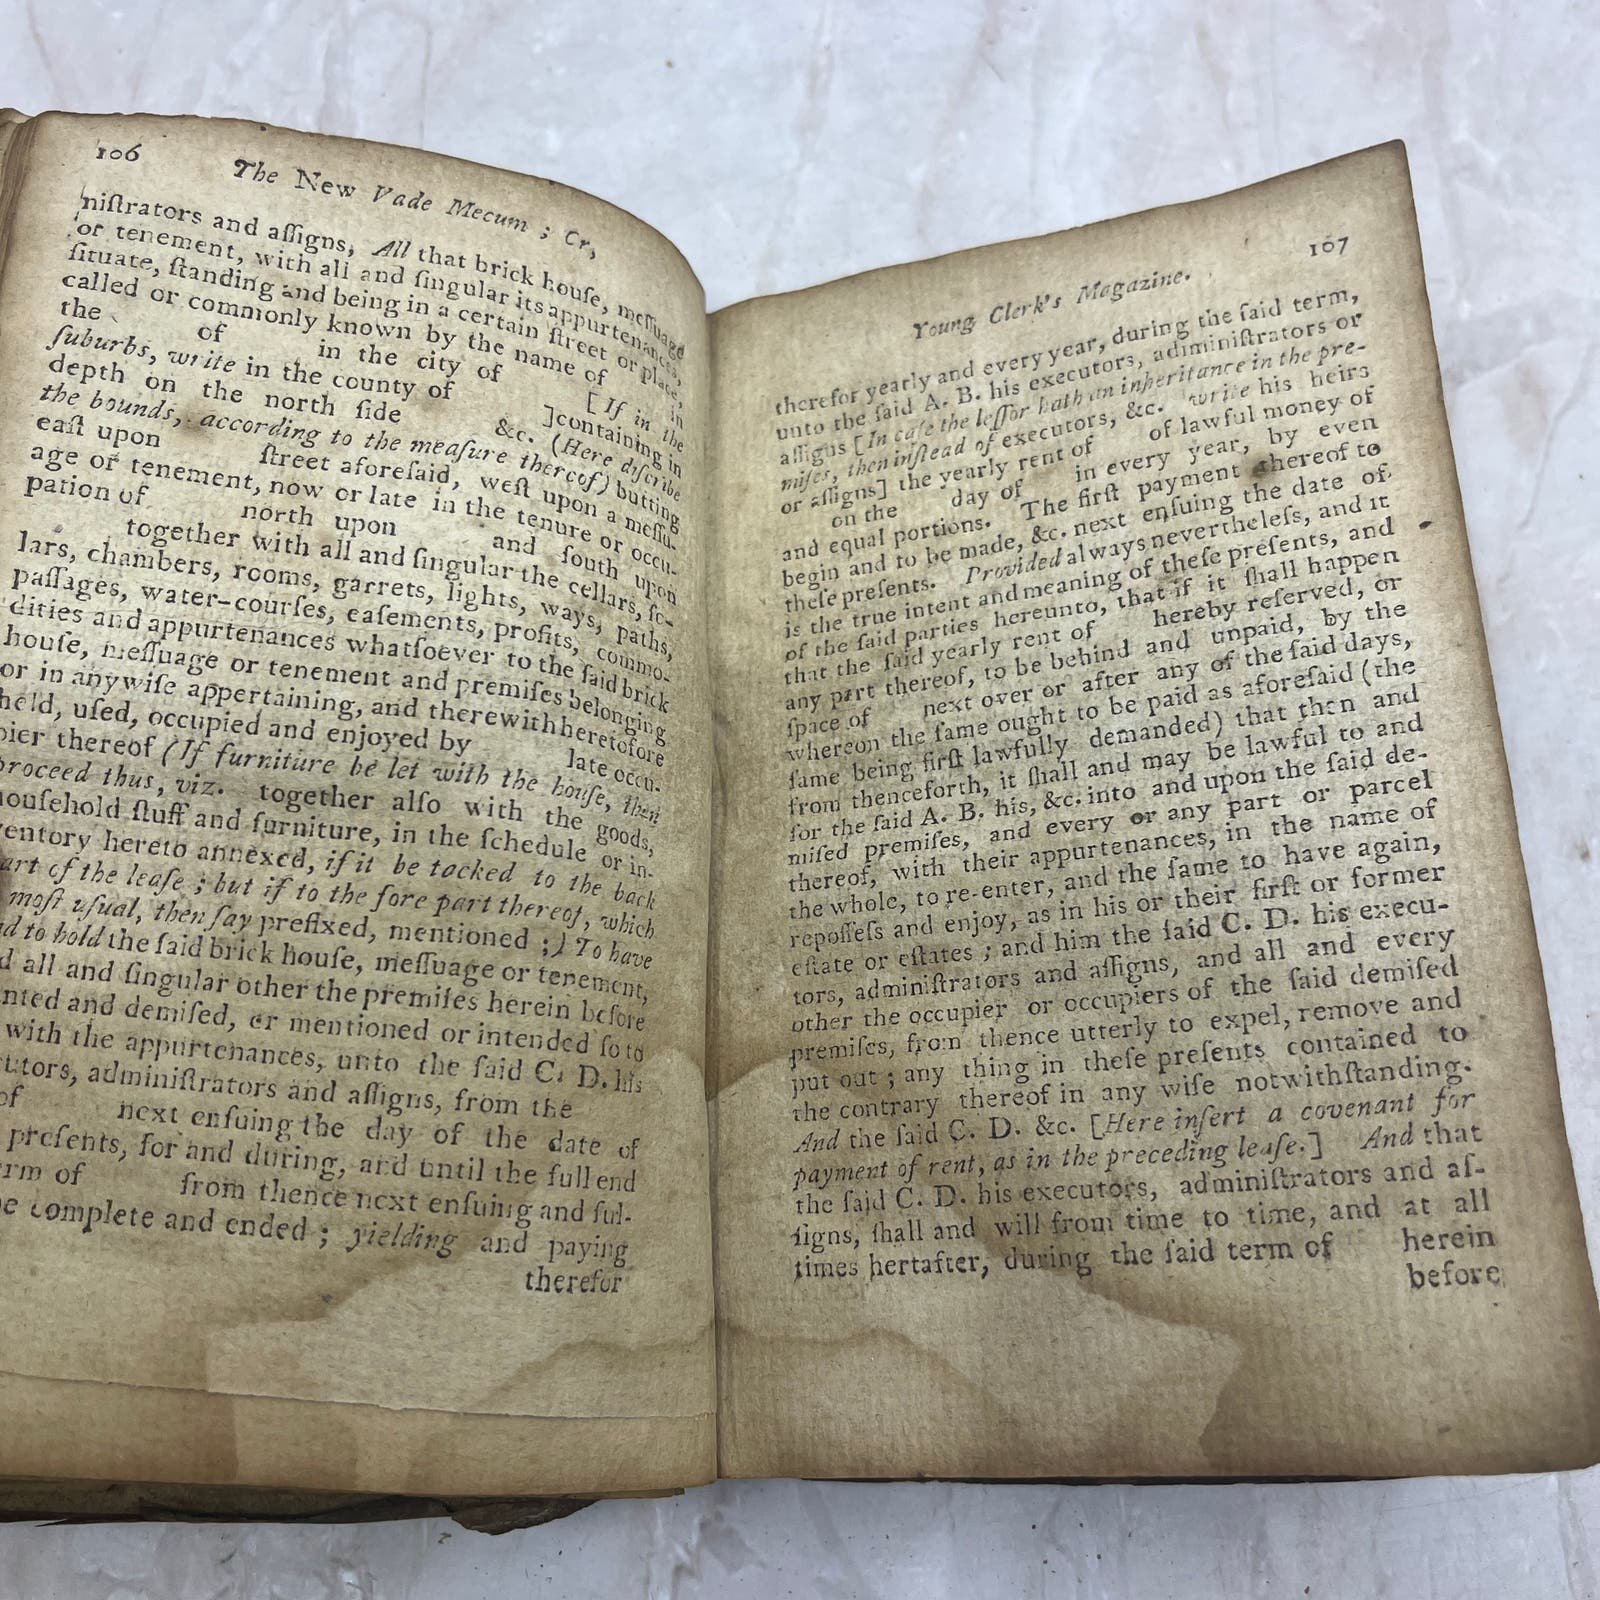 106
The New Vade Mecum ; Or,
niſtrators and aſſigns, All that brick houſe, meſſuage
or tenement, with all and ſingular its appurtenances,
ſituate, ſtanding and being in a certain ſtreet or place,
called or commonly known by the name of in
the of in the city of [If in the
ſuburbs, write in the county of ]containing in
depth on the north ſide &c. (Here diſcribe
the bounds, according to the meaſure thereof) butting
eaſt upon ſtreet aforeſaid, weſt upon a meſſu-
age or tenement, now or late in the tenure or occu-
pation of north upon and ſouth upon
together with all and ſingular the cellars, ſo-
lars, chambers, rooms, garrets, lights, ways, paths,
paſſages, water-courſes, eaſements, profits, commo-
dities and appurtenances whatſoever to the ſaid brick
houſe, meſſuage or tenement and premiſes belonging
or in anywiſe appertaining, and therewith heretofore
held, uſed, occupied and enjoyed by late occu-
pier thereof (If furniture be let with the houſe, then
proceed thus, viz. together alſo with the goods,
houſehold ſtuff and furniture, in the ſchedule or in-
ventory hereto annexed, if it be tacked to the back
art of the leaſe ; but if to the fore part thereof, which
moſt uſual, then ſay prefixed, mentioned ;) To have
nd to hold the ſaid brick houſe, meſſuage or tenement,
d all and ſingular other the premiſes herein before
nted and demiſed, or mentioned or intended ſo to
with the appurtenances, unto the ſaid C. D. his
cutors, adminiſtrators and aſſigns, from the
of next enſuing the day of the date of
preſents, for and during, and until the full end
rm of from thence next enſuing and ful-
e complete and ended ; yielding and paying
therefor
107
Young Clerk's Magazine.
therefor yearly and every year, during the ſaid term,
unto the ſaid A. B. his executors, adminiſtrators or
aſſigns [In caſe the leſſor hath an inheritance in the pre-
miſes, then inſtead of executors, &c. write his heirs
or aſſigns] the yearly rent of of lawful money of
on the day of in every year, by even
and equal portions. The firſt payment thereof to
begin and to be made, &c. next enſuing the date of
theſe preſents. Provided always nevertheleſs, and it
is the true intent and meaning of theſe preſents, and
of the ſaid parties hereunto, that if it ſhall happen
that the ſaid yearly rent of hereby reſerved, or
any part thereof, to be behind and unpaid, by the
ſpace of next over or after any of the ſaid days,
whereon the ſame ought to be paid as aforeſaid (the
ſame being firſt lawfully demanded) that then and
from thenceforth, it ſhall and may be lawful to and
for the ſaid A. B. his, &c. into and upon the ſaid de-
miſed premiſes, and every or any part or parcel
thereof, with their appurtenances, in the name of
the whole, to re-enter, and the ſame to have again,
repoſſeſs and enjoy, as in his or their firſt or former
eſtate or eſtates ; and him the ſaid C. D. his execu-
tors, adminiſtrators and aſſigns, and all and every
other the occupier or occupiers of the ſaid demiſed
premiſes, from thence utterly to expel, remove and
put out ; any thing in theſe preſents contained to
the contrary thereof in any wiſe notwithſtanding.
And the ſaid C. D. &c. [Here inſert a covenant for
payment of rent, as in the preceding leaſe.] And that
the ſaid C. D. his executors, adminiſtrators and aſ-
ſigns, ſhall and will from time to time, and at all
times hertafter, during the ſaid term of herein
before